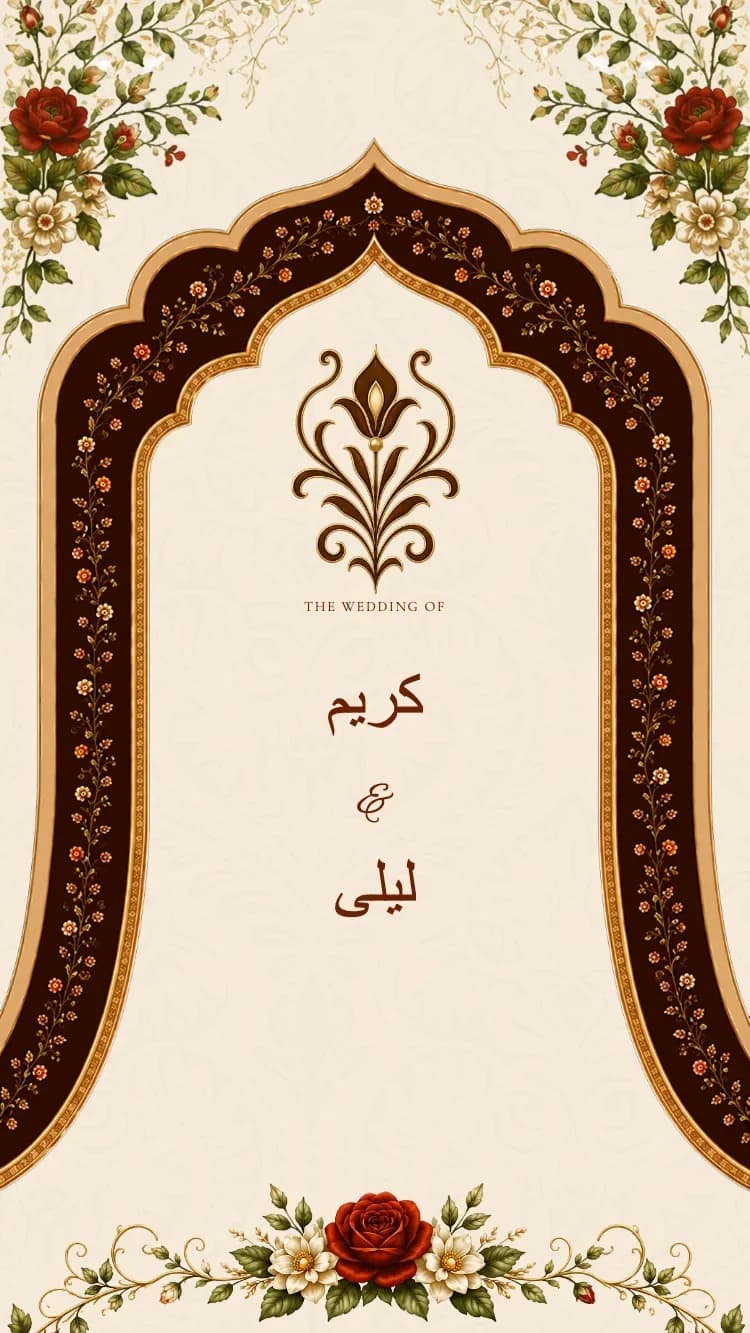 THE WEDDING OF
كريم
&
ليلى